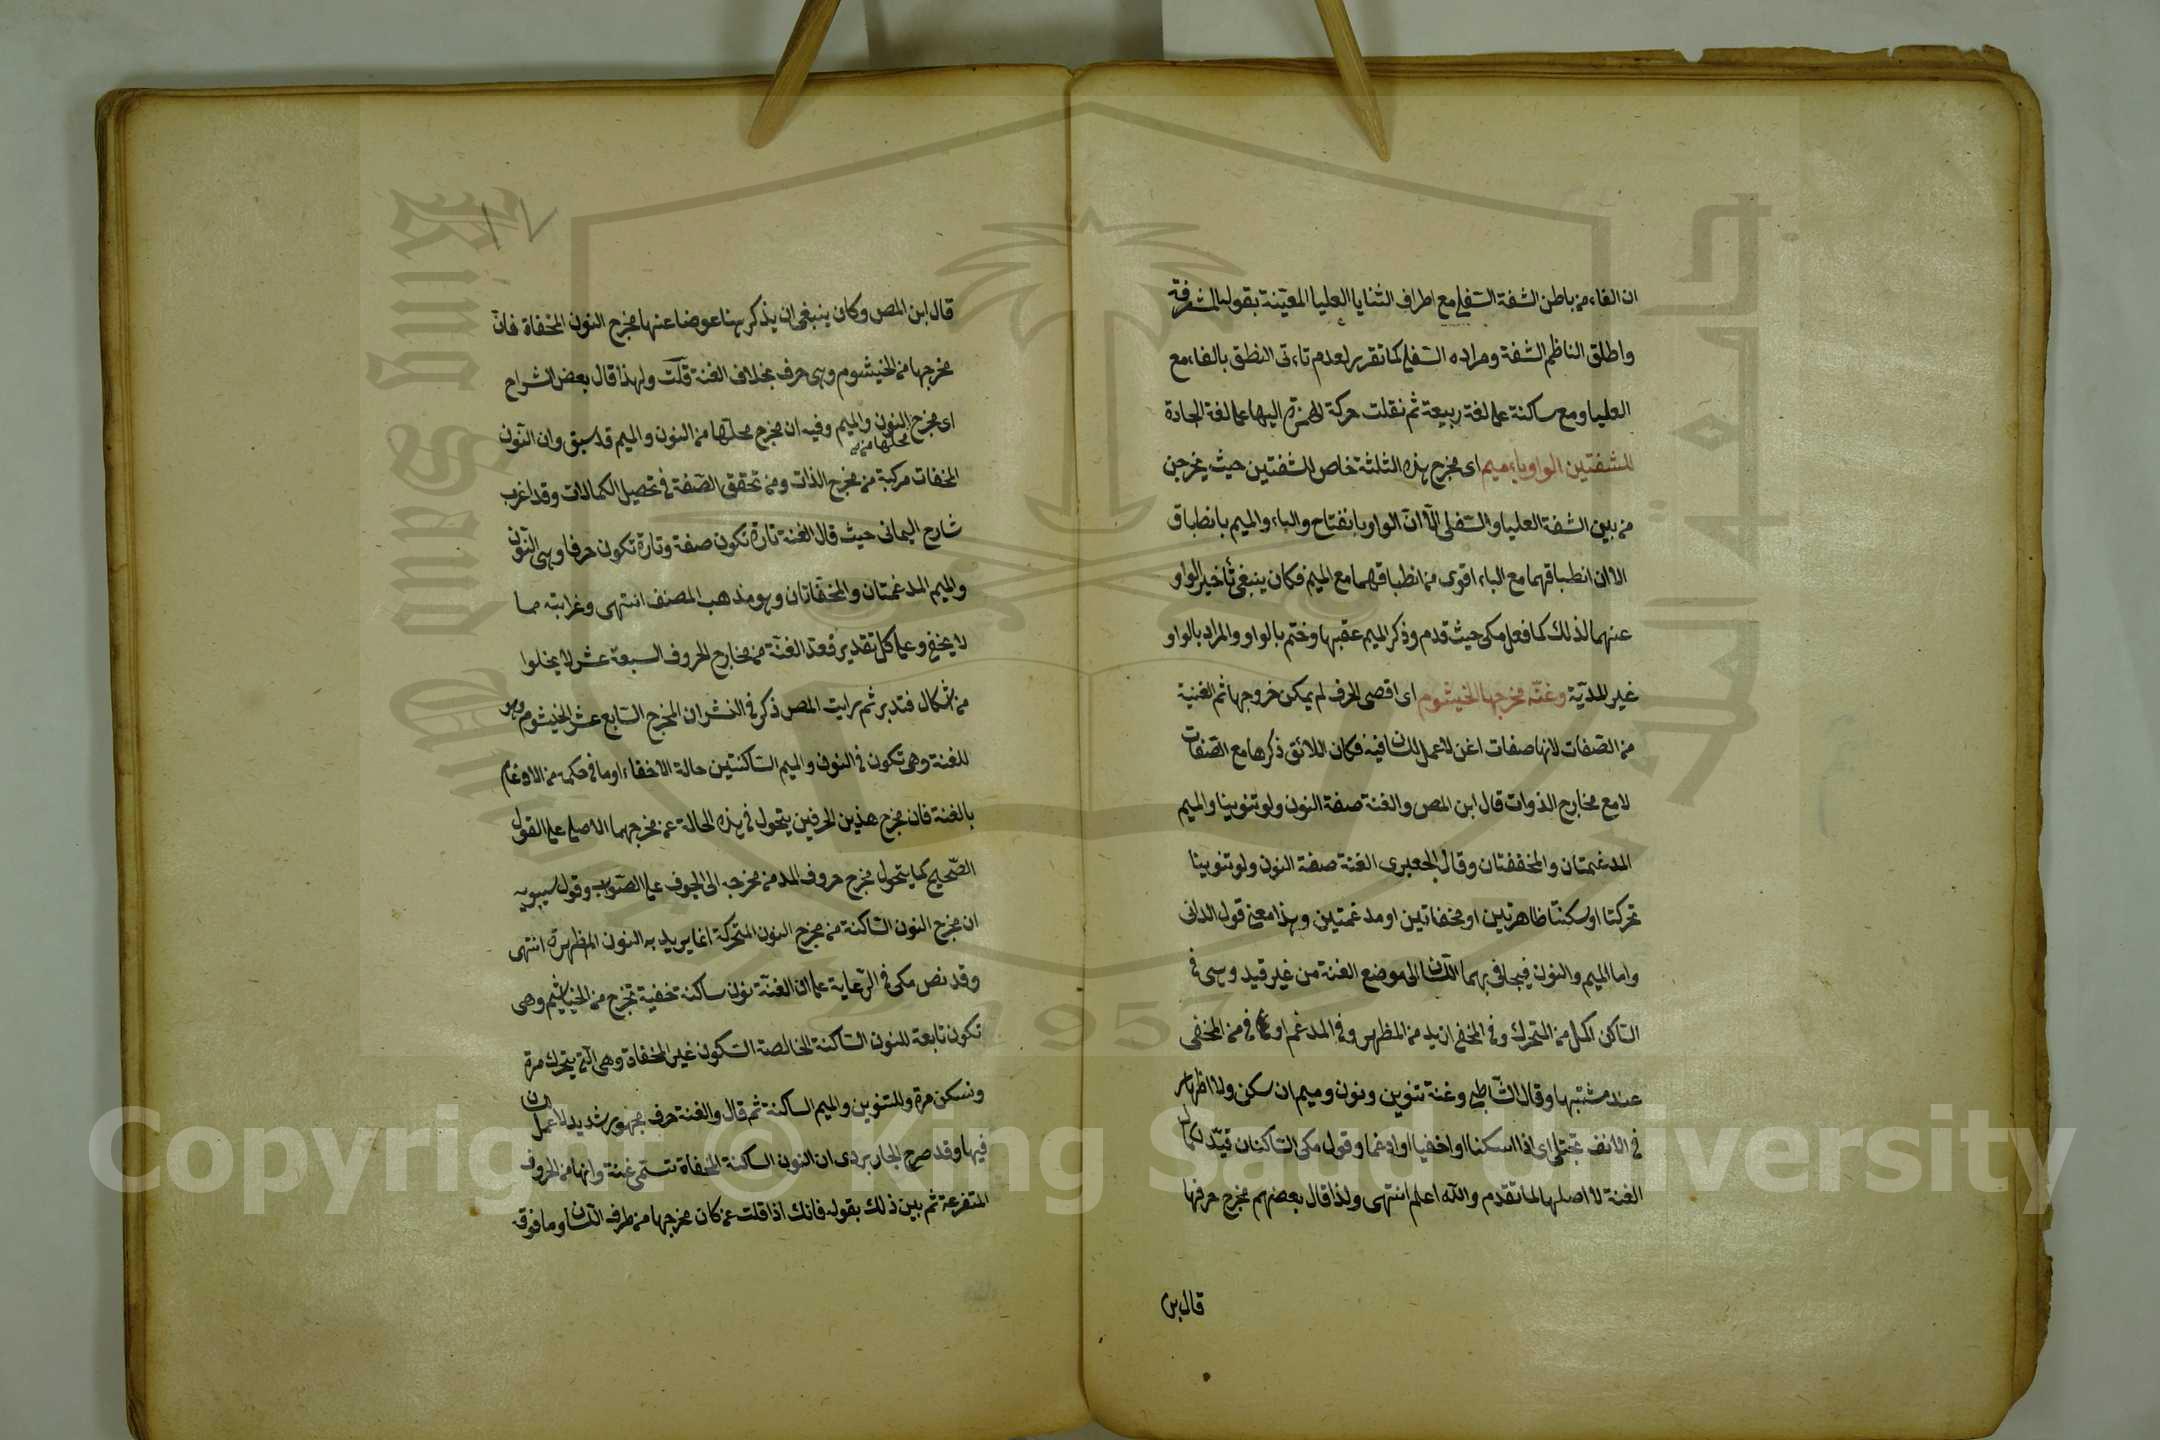 ان الفاء من باطن الشفة السفلى مع اطراف الثنايا العليا المعينة بقوله المشرفة
واطلق الناظم الشفة ومراده السفلى كما تقرر لعدم تاءتى النطق بالفاء مع
العليا ومع ساكنة على لغة ربيعة ثم نقلت حركة الهمزة اليها على لغة الجادة
للشفتين الواو باء ميم اى مخرج هذه الثلثة خاص للشفتين حيث يخرجن
من بين الشفة العليا والسفلى الا ان الواو بانفتاح والباء والميم بانطباق
الا ان انطباقهما مع الباء اقوى من انطباقهما مع الميم فكان ينبغى تاخير الواو
عنهما لذلك كما فعل مكى حيث قدم وذكر الميم عقبها وختم بالواو والمراد بالواو
غير المدية وغنه مخرجها الخيشوم اى اقصى الحرف لم يمكن خروجها ثم الغنية
من الصفات لانها صفات اغن لا عمل للسان فيه فكان اللائق ذكرها مع الصفات
لا مع مخارج الذوات قال ابن المص والغنة صفة النون ولو تنوينا والميم
المدغمتان والمخففتان وقال الجعبرى الغنة صفة النون ولو تنوينا
تحركتا او سكنتا ظاهرتين او مخفاتين او مدغمتين وهذا معنى قول الدانى
واما الميم والنون فيجافى بهما اللسان الى موضع الغنة من غير قيد وهى فى
الساكن اكمل من المتحرك وفى المخفى ازيد من المظهر وفى المدغم اوفى من المخفى
عند مشتبها وقال الشاطبى وغنة تنوين ونون وميم ان سكن ولا اظهار
فى الانف تجتلى اى اذا اسكنا او اخفيا او ادغما وقول مكى الساكنان قيد لكمال
الغنة لا اصلها لما تقدم والله اعلم انتهى ولذا قال بعضهم مخرج حرفها
قال بن
١٧
قال ابن المص وكان ينبغى ان يذكر هنا عوضا عنها مخرج النون المخفاة فان
مخرجها من الخيشوم وهى حرف بخلاف الغنة قلت ولهذا قال بعض الشراح
اى مخرج النون والميم وفيه ان مخرج محلها من النون والميم قد سبق وان النون
محلها من
المخفات مركبة من مخرج الذات ومن تحقق الصفة فى تحصيل الكمالات وقد اغرب
شارح اليمانى حيث قال الغنة تارة تكون صفة وتارة تكون حرفا وهى النون
والميم المدغمتان والمخفاتان وهو مذهب المصنف انتهى وغرابته مما
لا يخفى وعلى كل تقدير فعد الغنة من مخارج الحروف السبعة عشر لا يخلوا
من اشكال فتدبر ثم رايت المص ذكر فى النشر ان المخرج السابع عشر الخيشوم وهو
للغنة وهى تكون فى النون والميم الساكنتين حالة الاخفاء او ما فى حكمه من الادغام
بالغنة فان مخرج هذين الحرفين يتحول فى هذه الحالة عن مخرجهما الاصلى على القول
الصحيح كما يتحول مخرج حروف المد من مخرجه الى الجوف على الصواب وقول سيبويه
ان مخرج النون الساكنة من مخرج النون المتحركة انما يريد به النون المظهرة انتهى
وقد نص مكى فى الرعاية على ان الغنة نون ساكنة خفية تخرج من الخياشيم وهى
تكون تابعة للنون الساكنة الخالصة السكون غير المخفاة وهى التى يتحرك مرة
وتسكن مرة وللتنوين والميم الساكنة ثم قال والغنة حرف مجهور شديد لا عمل للسان
فيها وقد صرح الجاربردى ان النون الساكنة المخفاة تسمى غنة وانها من الحروف
المتفرعة ثم بين ذلك بقوله فانك اذا قلت عن كان مخرجها من طرف اللسان وما فوقه
Copyright © King Saud University
King Saud University
جامعة الملك سعود
1957